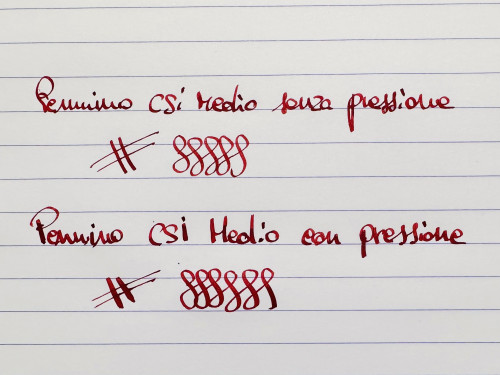 Pennino CSi Medio senza pressione
#
Pennino CSi Medio con pressione
#